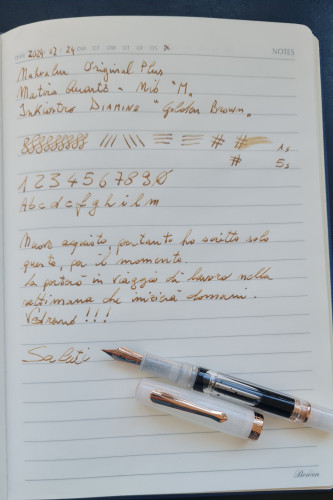 DATE 2024 • 12 • 29 NOTES
Nahvalur Original Plus
Matira Quarto - Nib "M"
Inkiostro DIAMINE "Golden Brown"
# # 1s
# 5s
1 2 3 4 5 6 7 8 9 0
A b c d e f g h i l m
Nuovo acquisto, pertanto ho scritto solo
questo, per il momento.
La porterò in viaggio di lavoro nella
settimana che inizia domani.
Vedremo !!!
Saluti